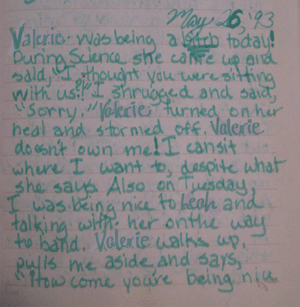 May 26, '93
Valerie was being a bitch today!
During Science she came up and
said, "I thought you were sitting
with us?!" I shrugged and said,
"Sorry." Valerie turned on her
heal and stormed off. Valerie
doesn't own me! I can sit
where I want to, despite what
she says. Also on Tuesday,
I was being nice to Leah and
talking with her on the way
to band. Valerie walks up,
pulls me aside and says,
"How come you're being nice